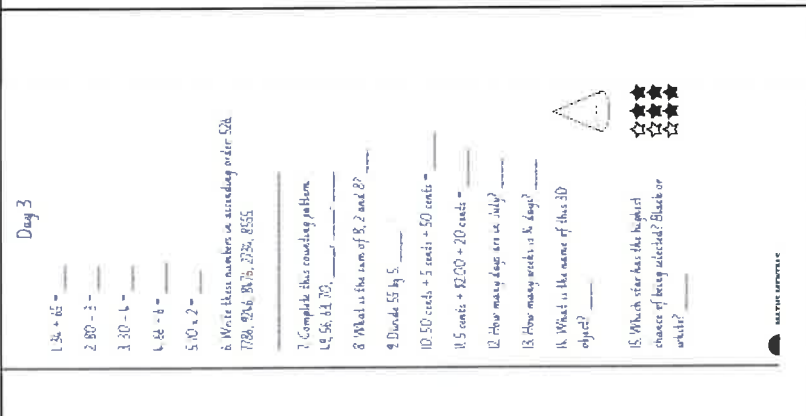 Day 3
1. 34 + 65 =
2. 80 - 3 =
3. 30 - 6 =
4. 66 - 6 =
5. 10 x 2 =
6. Write these numbers in ascending order: 526,
7786, 9246, 8476, 2734, 8555
7. Complete this counting pattern
49, 56, 63, 70,
8. What is the sum of 3, 2 and 8?
9. Divide 55 by 5.
10. 50 cents + 5 cents + 50 cents =
11. 5 cents + $2.00 + 20 cents =
12. How many days are in July?
13. How many weeks is 14 days?
14. What is the name of this 3D
object?
15. Which star has the highest
chance of being selected? Black or
white?
MATHS MENTALS